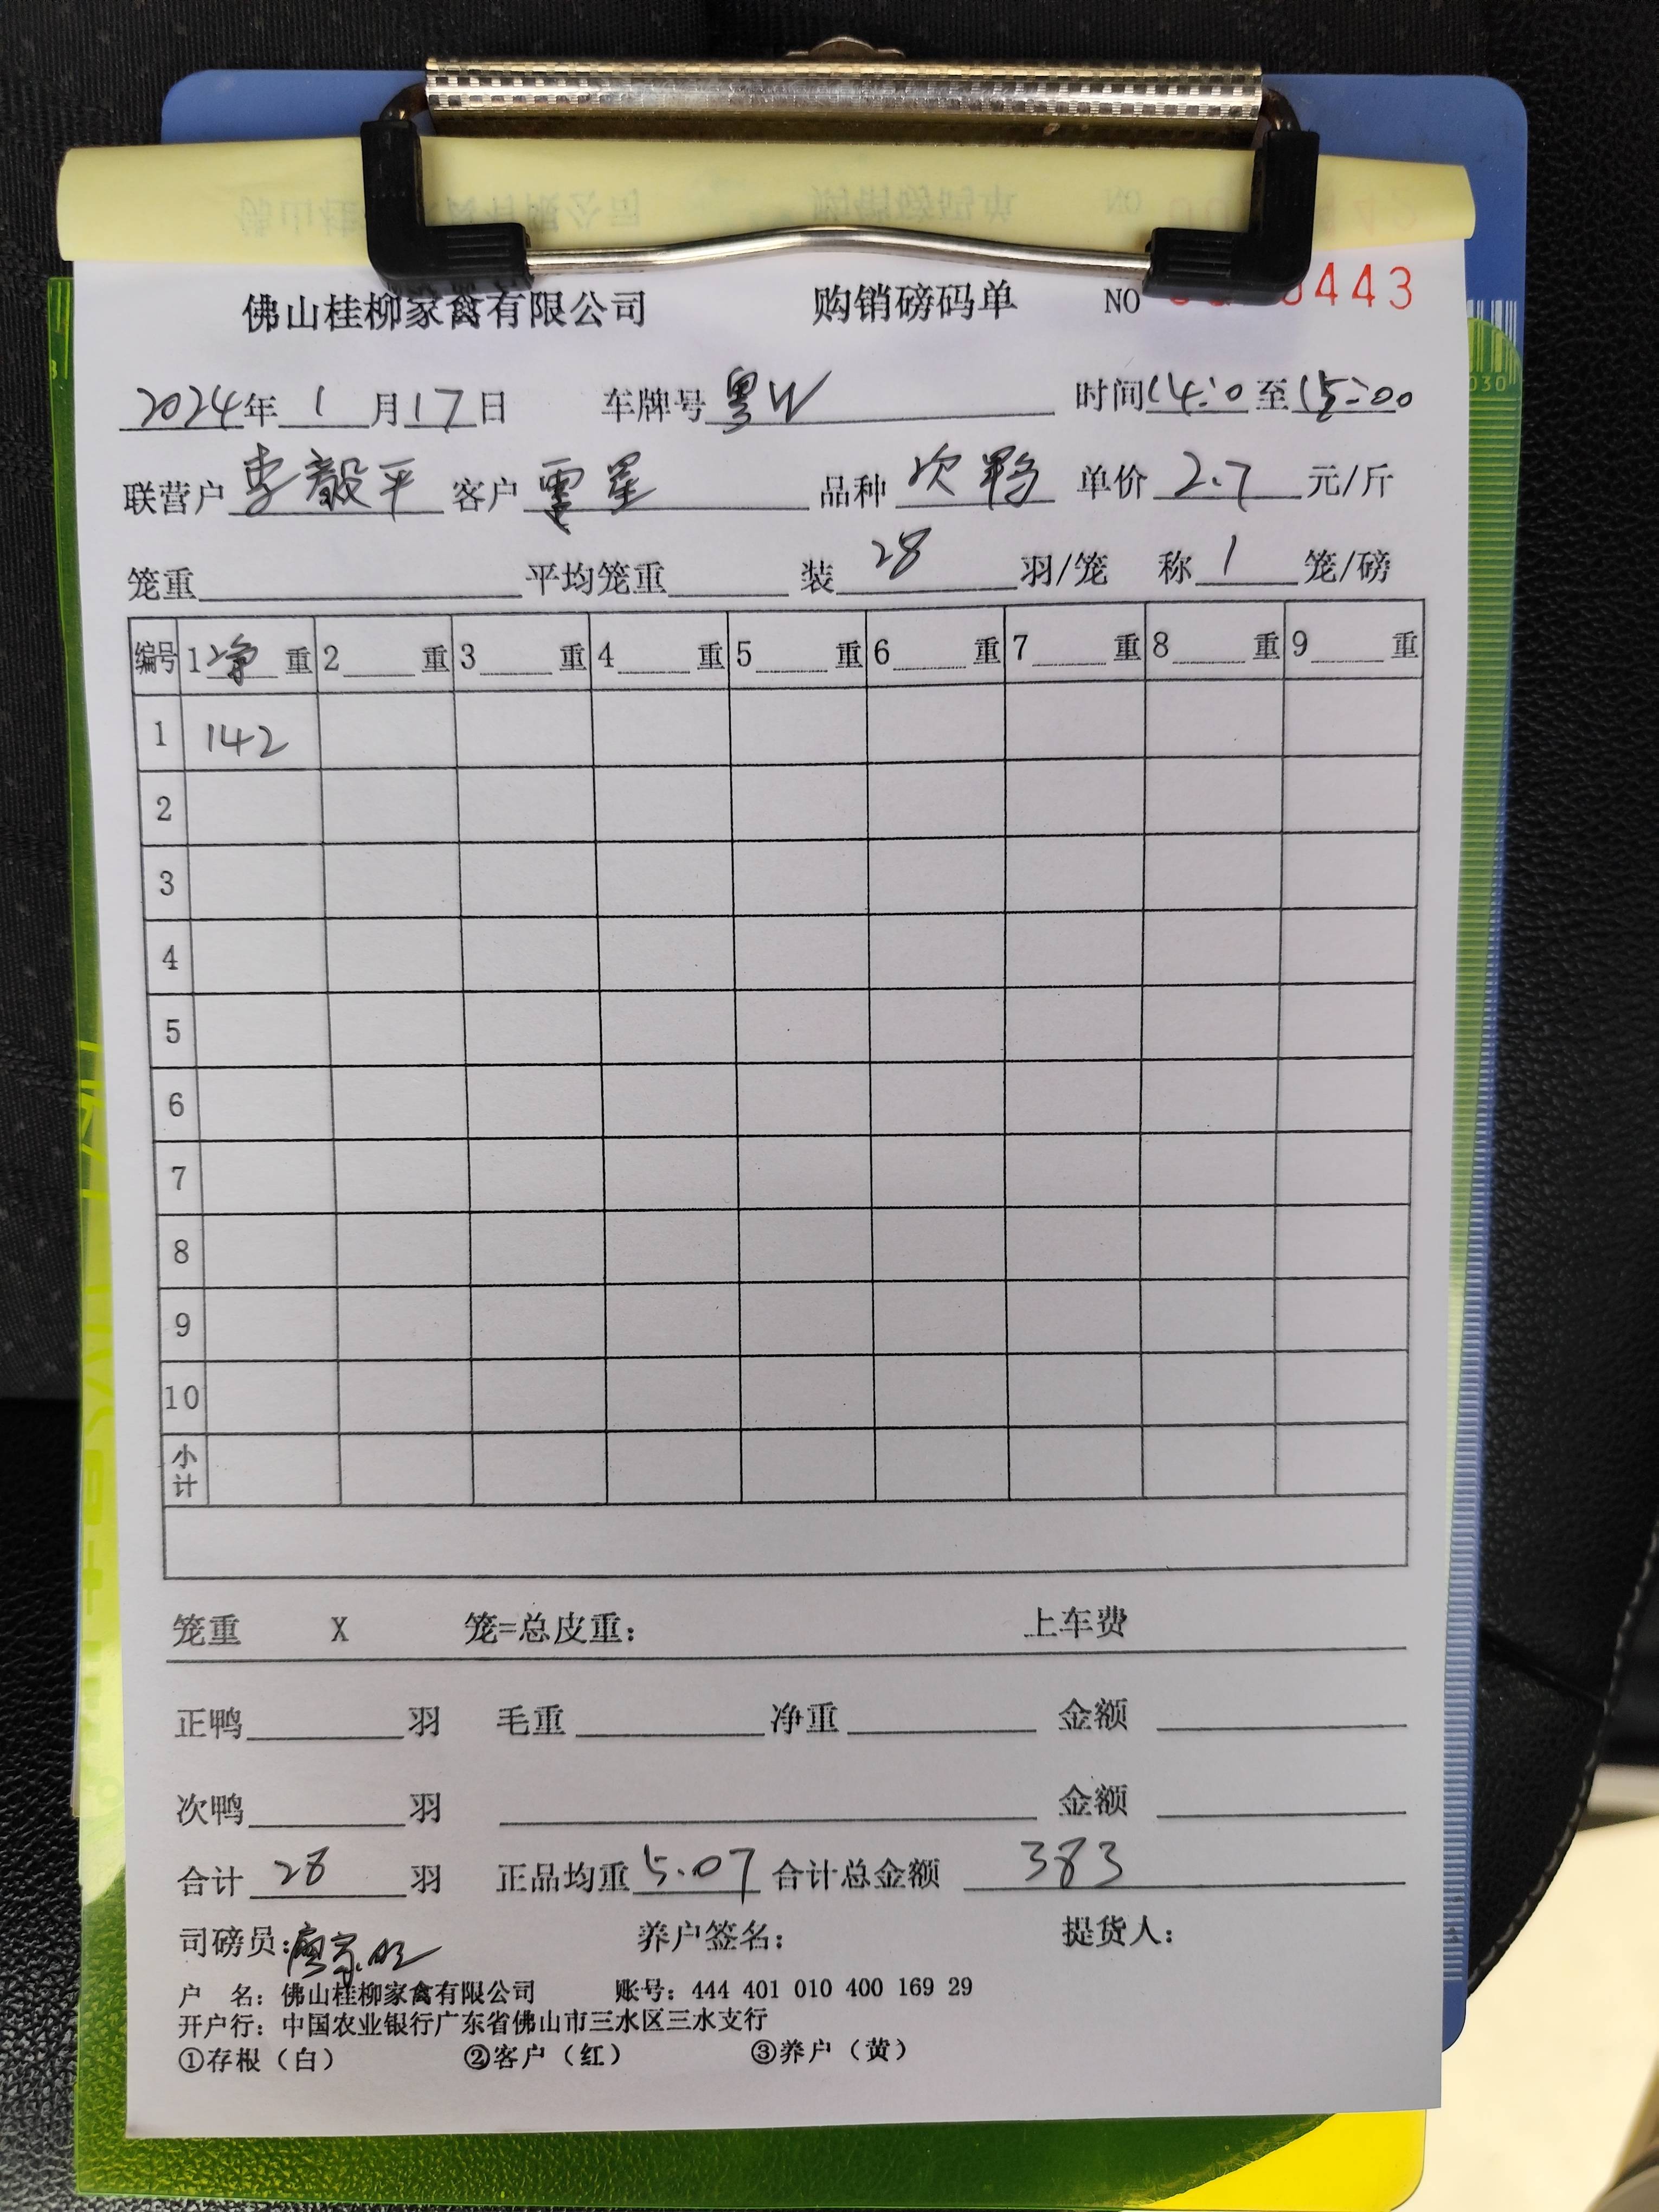 佛山桂柳家禽有限公司 购销磅码单 NO 443
2024年 1 月 17 日 车牌号 粤W 时间 14:0 至 15:00
联营户 李毅平 客户 星 品种 次鸭 单价 2.7 元/斤
笼重 平均笼重 装 28 羽/笼 称 1 笼/磅
编号 1 净 重 2 重 3 重 4 重 5 重 6 重 7 重 8 重 9 重
1 142
2
3
4
5
6
7
8
9
10
小计
笼重 X 笼=总皮重: 上车费
正鸭 羽 毛重 净重 金额
次鸭 羽 金额
合计 28 羽 正品均重 5.07 合计总金额 383
司磅员: 养户签名: 提货人:
户 名: 佛山桂柳家禽有限公司 账号: 444 401 010 400 169 29
开户行: 中国农业银行广东省佛山市三水区三水支行
①存根(白) ②客户(红) ③养户(黄)